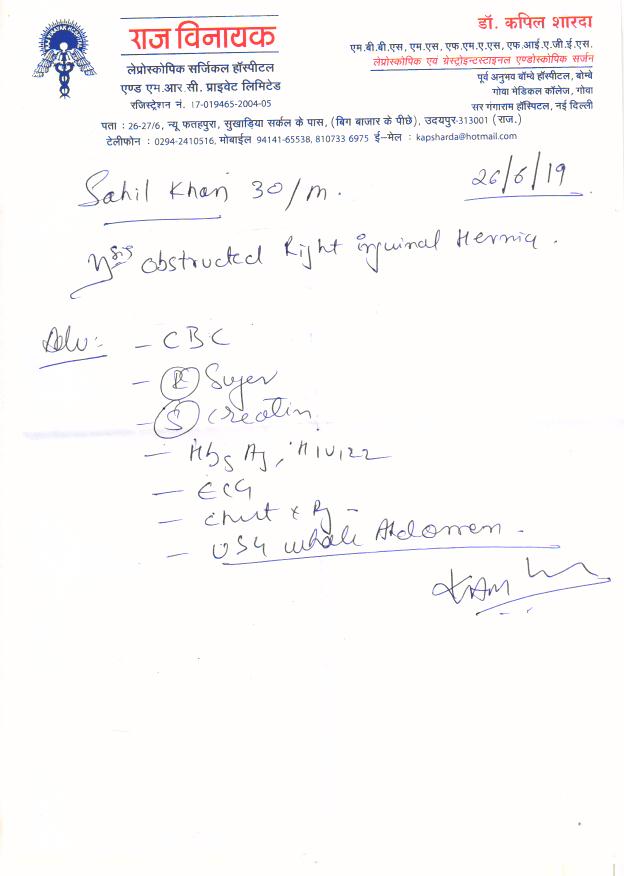 राज विनायक
लेप्रोस्कोपिक सर्जिकल हॉस्पीटल
एण्ड एम.आर.सी. प्राइवेट लिमिटेड
रजिस्ट्रेशन नं. 17-019465-2004-05
डॉ. कपिल शारदा
एम.बी.बी.एस, एम.एस. एफ.एम.ए.एस, एफ.आई.ए.जी.ई.एस.
लेप्रोस्कोपिक एव ग्रेस्ट्रोइन्टस्टाइनल एण्डोस्कोपिक सर्जन
पूर्व अनुभव बॉम्बे हॉस्पीटल, बोम्बे
गोवा मेडिकल कॉलेज, गोवा
सर गंगाराम हॉस्पिटल, नई दिल्ली
पता : 26-27/6, न्यू फतहपुरा, सुखाड़िया सर्कल के पास, (बिग बाजार के पीछे), उदयपुर-313001 (राज.)
टेलीफोन : 0294-2410516, मोबाईल 94141-65538, 810733 6975 ई-मेल : kapsharda@hotmail.com
Sahil Khan 30/m. 26/6/19
obstructed Right inguinal Hernia.
Adv:-
- CBC
- (R) Suger
- (S) Creatin
- HbsAg, HIV 1,2
- ECG
- Chest x Ry -
- USG whole Abdomen -